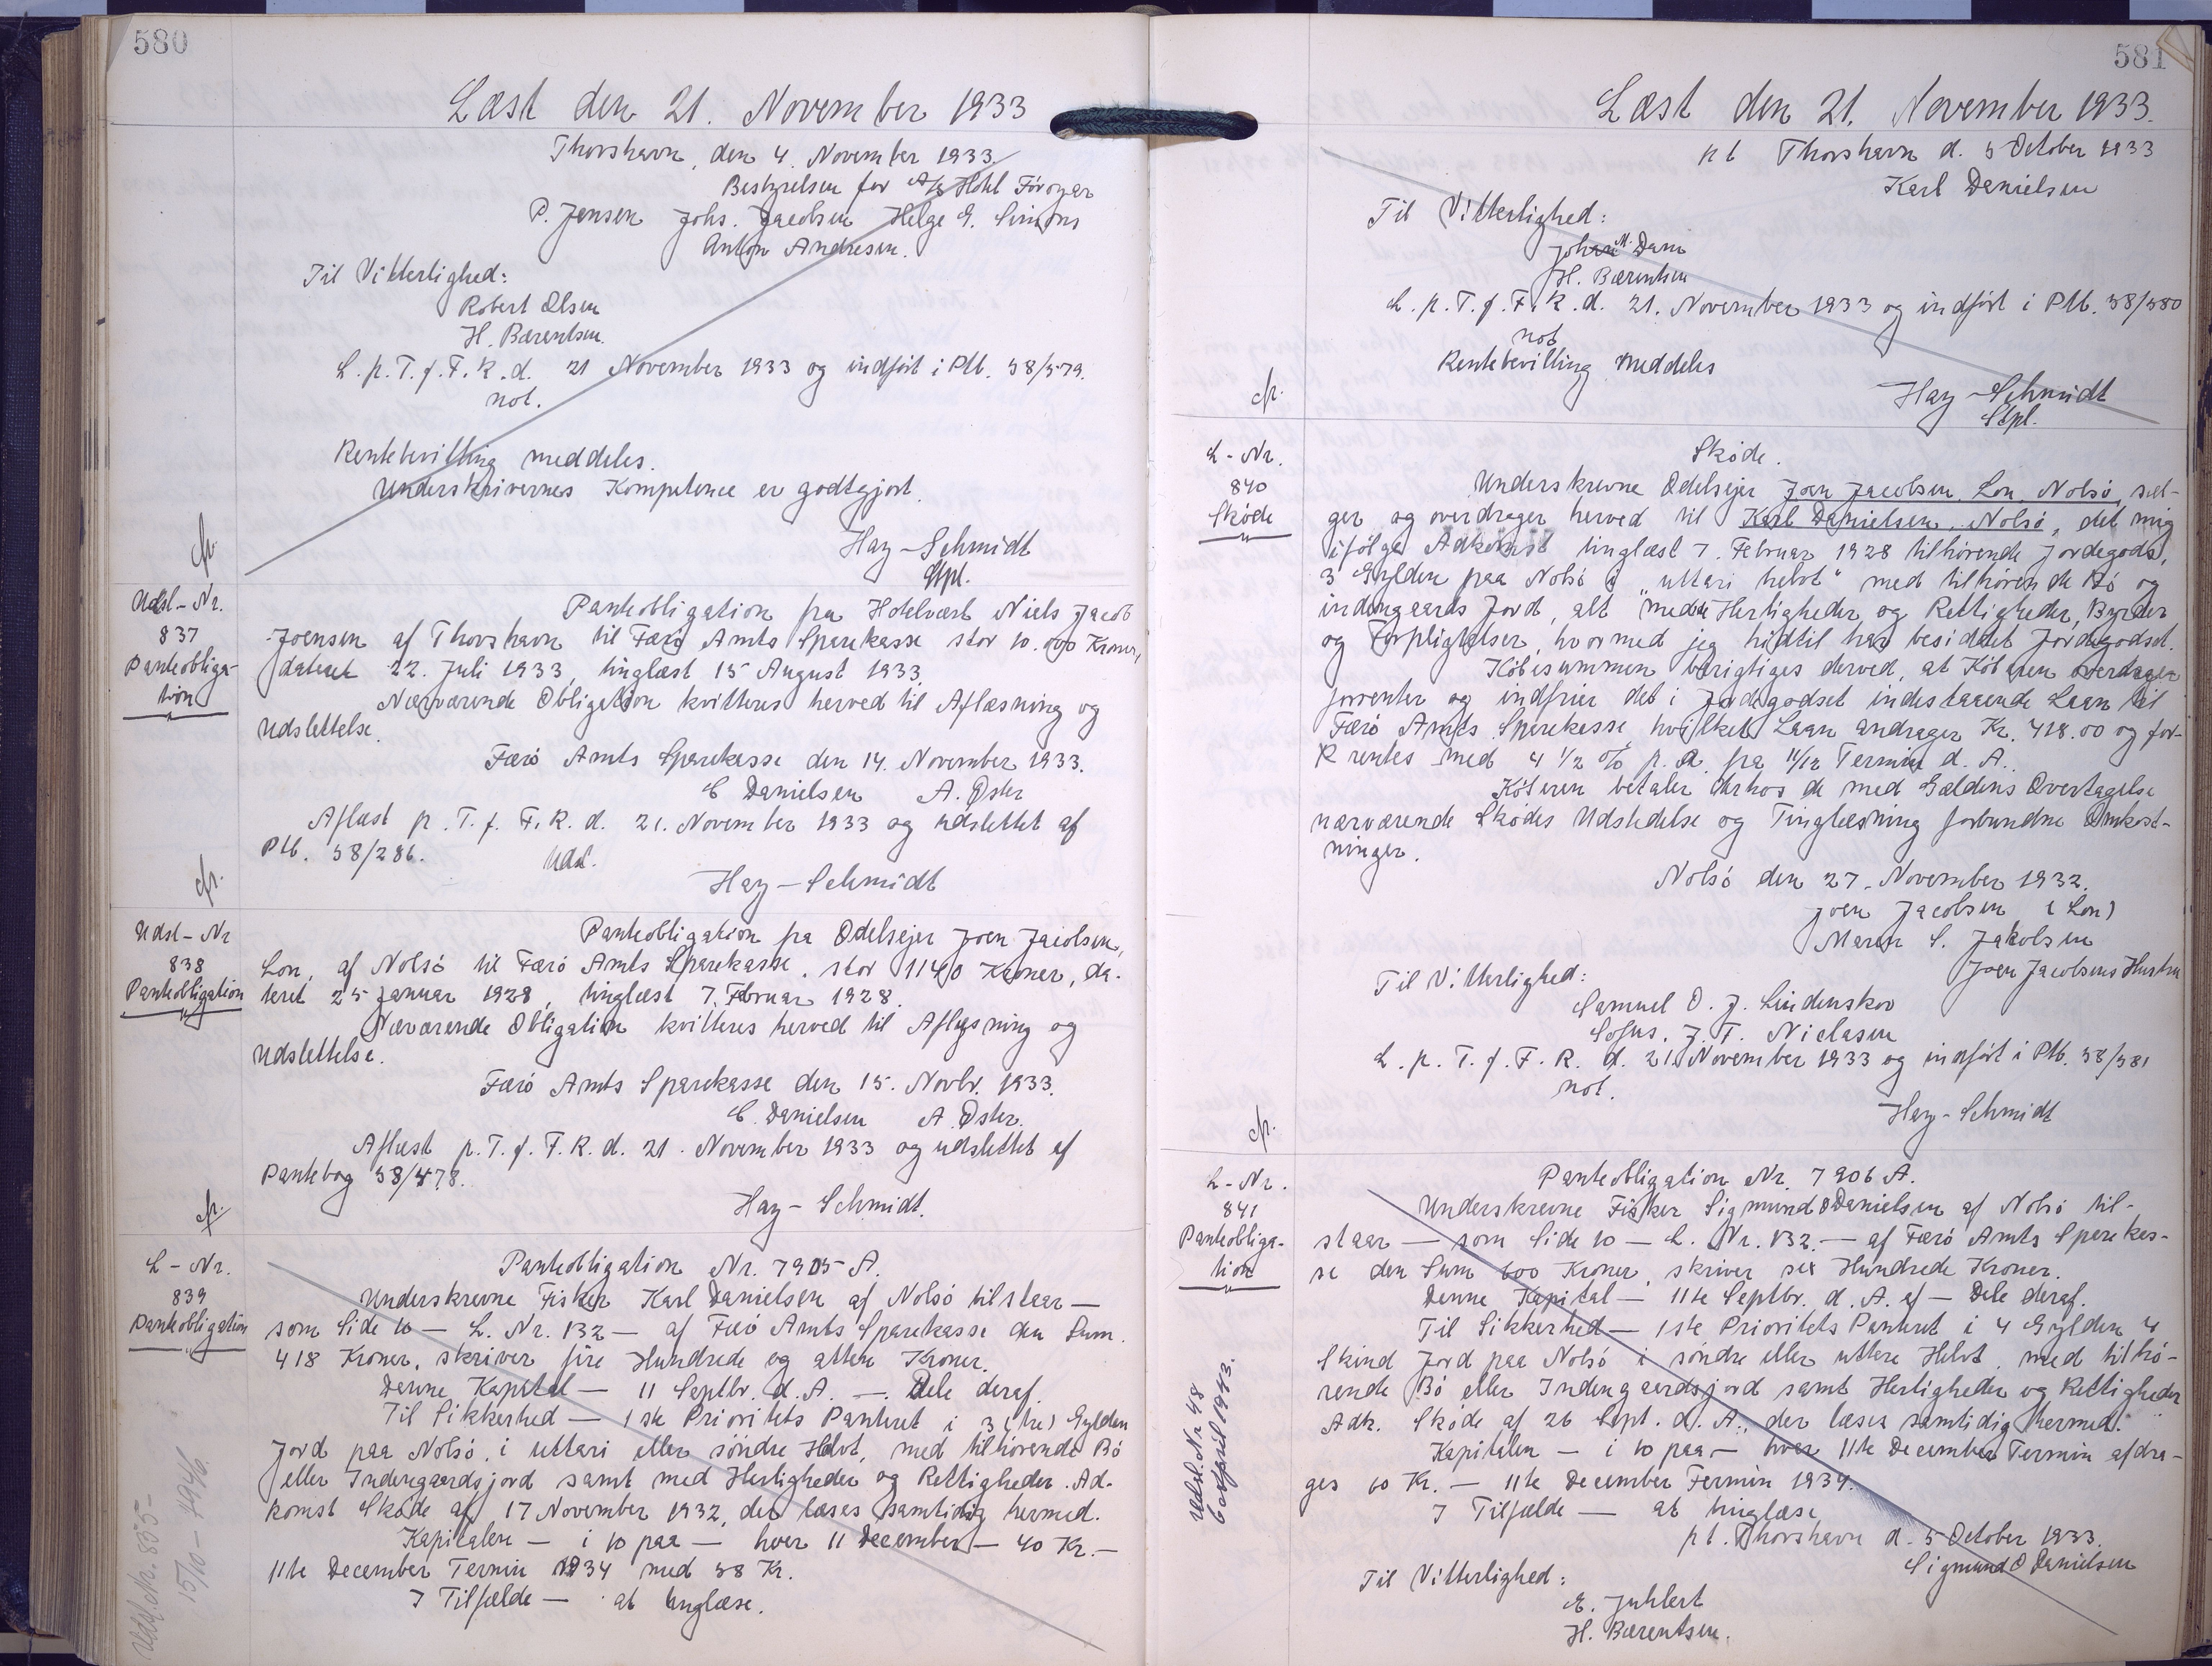 580
Læst den 21. November 1933
Thorshavn, den 4. November 1933.
Bestyrelsen for A/S Hotel Föroyar
P. Jensen Johs. Jacobsen Helge G. Simons
Anton Andresen.
Til Vitterlighed:
Robert Olsen
H. Bærentsen.
L. p. T. f. F. R. d. 21 November 1933 og indfört i Ptb. 38/579.
not.
Rentebevilling meddeles.
Underskrivernes Kompetence er godtgjort.
Hay-Schmidt
Stpl.
cfr.
Udsl-Nr.
837
Pantobliga-
tion
Pantobligation fra Hotelvært Niels Jacob
Joensen af Thorshavn til Færö Amts Sparekasse stor 10.000 Kroner,
dateret 22. Juli 1933, tinglæst 15 August 1933.
Nærværende Obligation kvitteres herved til Aflæsning og
Udslettelse.
Færö Amts Sparekasse den 14. November 1933.
C Danielsen A. Öster
Aflæst p. T. f. F. R. d. 21. November 1933 og udslettet af
Ptb. 38/286. Udsl.
Hay-Schmidt
cfr.
Udsl-Nr
838
Pantobligation
Pantobligation fra Odelsejer Joen Jacobsen,
Lon, af Nolsö til Færö Amts Sparekasse, stor 1140 Kroner, da-
teret 25 Januar 1928, tinglæst 7. Februar 1928.
Nærværende Obligation kvitteres herved til Aflæsning og
Udslettelse.
Færö Amts Sparekasse den 15. Novbr. 1933.
C. Danielsen A. Öster.
Aflæst p. T. f. F. R. d. 21. November 1933 og udslettet af
Pantebog 33/478.
Hay-Schmidt.
cfr.
L-Nr.
839
Pantobligation
Pantobligation Nr. 7905-A.
Underskrevne Fisker Karl Danielsen af Nolsö tilstaar —
som Side 10 — L. Nr. 132 — af Færö Amts Sparekasse den Sum
418 Kroner, skriver fire Hundrede og atten Kroner.
Denne Kapital — 11 Septbr. d. A. — Dele deraf.
Til Sikkerhed — 1ste Prioritets Panteret i 3 (tre) Gylden
Jord paa Nolsö, i uttari eller söndre Helvt, med tilhörende Bö
eller Indengaardsjord samt med Herligheder og Rettigheder. Ad-
komst Sköde af 17 November 1932, der læses samtidig hermed.
Kapitalen — i 10 paa — hver 11 December — 40 Kr. —
11te December Termin 1934 med 58 Kr.
I Tilfælde — at tinglæse.
Udsl. Nr. 835-
15/10 - 1946.
581
Læst den 21. November 1933.
pt Thorshavn d. 5 October 1933
Karl Danielsen
Til Vitterlighed:
Johan M. Dam
H. Bærentsen
L. p. T. f. F. R. d. 21. November 1933 og indfört i Ptb. 38/580
not
Rentebevilling meddeles
Hay-Schmidt
Stpl.
cfr.
L-Nr.
840
Sköde
Sköde.
Underskrevne Odelsejer Joen Jacobsen, Lon, Nolsö, sæl-
ger og overdrager herved til Karl Danielsen, Nolsö, det mig
ifölge Adkomst tinglæst 7. Februar 1928 tilhörende Jordegods,
3 Gylden paa Nolsö i "uttari helvt" med tilhörende Bö og
indengaards Jord, alt med Herligheder og Rettigheder, Byrder
og Forpligtelser, hvormed jeg hidtil har besiddet Jordegodset.
Köbesummen berigtiges derved, at Köberen overtager
forrenter og indfrier det i Jordegodset indestaaende Laan til
Færö Amts Sparekasse hvilket Laan andrager Kr. 418.00 og for-
rentes med 4 1/2 % p. a. fra 11/12 Termin d. A.
Köberen betaler derhos de med Gældens Overtagelse
nærværende Sködes Udstedelse og Tinglæsning forbundne Omkost-
ninger.
Nolsö den 27. November 1932.
Joen Jacobsen (Lon)
Maren S. Jakobsen
Joen Jacobsens Hustru
Til Vitterlighed:
Samuel O. J. Lindenskov
Sofus. J. T. Niclasen
L. p. T. f. F. R. d. 21. November 1933 og indfört i Ptb. 38/581
not.
Hay-Schmidt
cfr.
L-Nr.
841
Pantobliga-
tion
Pantobligation Nr. 7906 A.
Underskrevne Fisker Sigmund O Danielsen af Nolsö til-
staar — som Side 10 — L. Nr. 132. — af Færö Amts Sparekas-
se den Sum 600 Kroner, skriver sex Hundrede Kroner.
Denne Kapital — 11te Septbr. d. A. af — Dele deraf.
Til Sikkerhed — 1ste Prioritets Panteret i 4 Gylden 4
Skind Jord paa Nolsö i söndre eller uttere Helvt, med tilhö-
rende Bö eller Indengaardsjord samt Herligheder og Rettigheder
Adk. Sköde af 26 Sept. d. A., der læses samtidig hermed.
Kapitalen — i 10 paa — hver 11te December Termin afdra-
ges 60 Kr. — 11te December Termin 1934.
I Tilfælde — at tinglæse
pt. Thorshavn d. 5 October 1933.
Sigmund O Danielsen
Til Vitterlighed:
E. Juhlert
H. Bærentsen.
Udsl. Nr 48
6 april 1943.